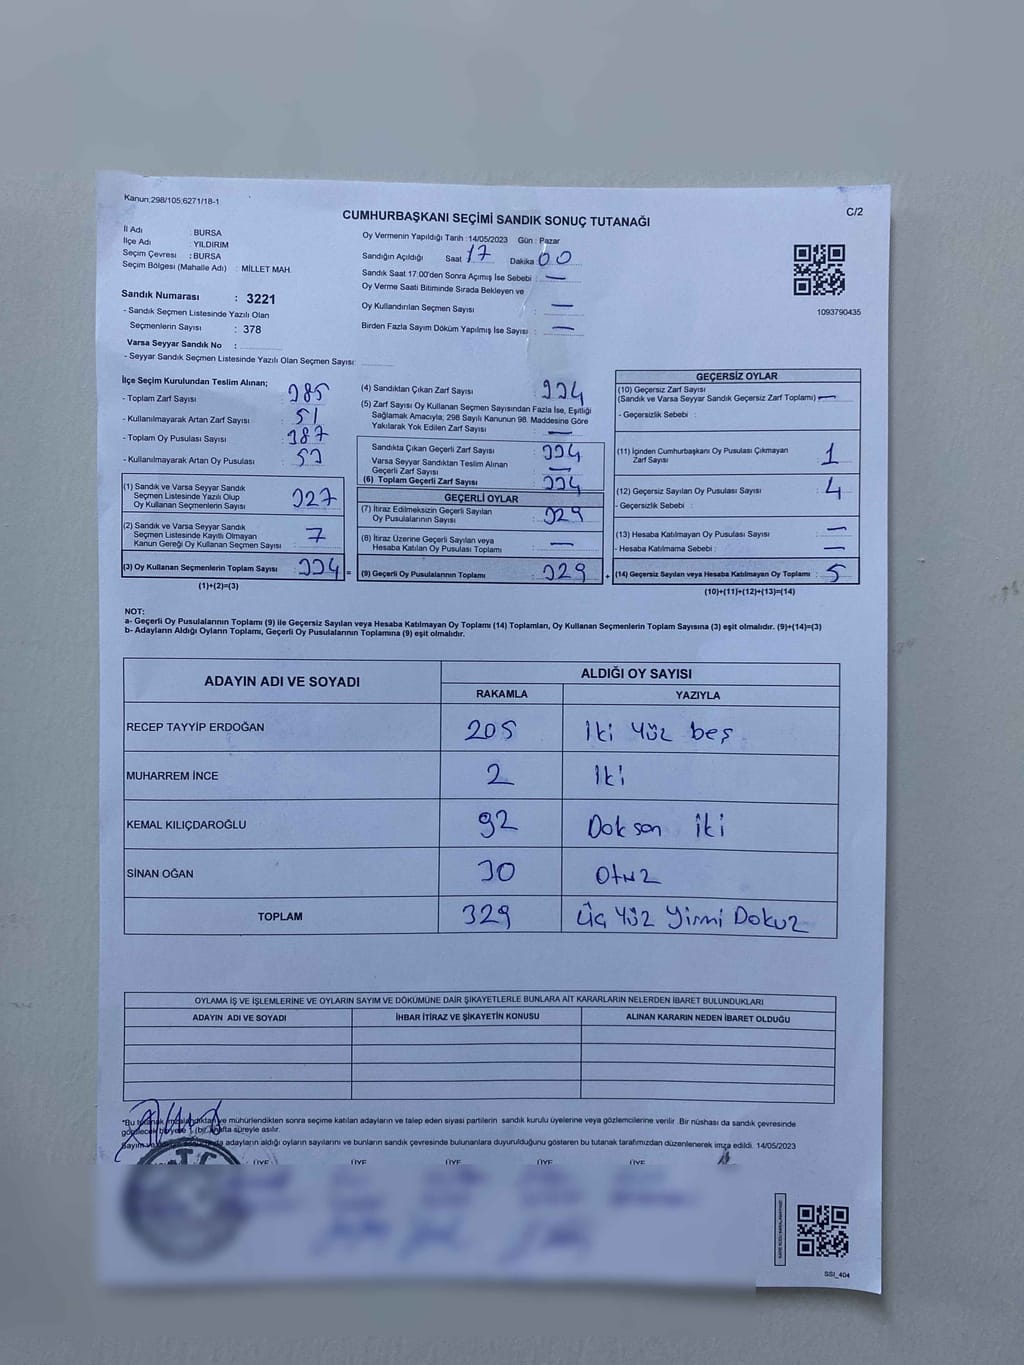 Kanun;298/105;6271/18-1
C/2
CUMHURBAŞKANI SEÇİMİ SANDIK SONUÇ TUTANAĞI
İl Adı : BURSA
İlçe Adı : YILDIRIM
Seçim Çevresi : BURSA
Seçim Bölgesi (Mahalle Adı) : MİLLET MAH.
Sandık Numarası : 3221
- Sandık Seçmen Listesinde Yazılı Olan
Seçmenlerin Sayısı : 378
Varsa Seyyar Sandık No :
- Seyyar Sandık Seçmen Listesinde Yazılı Olan Seçmen Sayısı:
Oy Vermenin Yapıldığı Tarih :14/05/2023 Gün : Pazar
Sandığın Açıldığı Saat 17 Dakika 00
Sandık Saat 17:00'den Sonra Açılmış İse Sebebi : —
Oy Verme Saati Bitiminde Sırada Bekleyen ve
Oy Kullandırılan Seçmen Sayısı : —
Birden Fazla Sayım Döküm Yapılmış İse Sayısı : —
1093790435
İlçe Seçim Kurulundan Teslim Alınan;
- Toplam Zarf Sayısı : 385
- Kullanılmayarak Artan Zarf Sayısı : 51
- Toplam Oy Pusulası Sayısı : 387
- Kullanılmayarak Artan Oy Pusulası : 53
(1) Sandık ve Varsa Seyyar Sandık
Seçmen Listesinde Yazılı Olup
Oy Kullanan Seçmenlerin Sayısı : 327
(2) Sandık ve Varsa Seyyar Sandık
Seçmen Listesinde Kayıtlı Olmayan
Kanun Gereği Oy Kullanan Seçmen Sayısı : 7
(3) Oy Kullanan Seçmenlerin Toplam Sayısı : 334 =
(1)+(2)=(3)
(4) Sandıktan Çıkan Zarf Sayısı : 334
(5) Zarf Sayısı Oy Kullanan Seçmen Sayısından Fazla İse, Eşitliği
Sağlamak Amacıyla; 298 Sayılı Kanunun 98. Maddesine Göre
Yakılarak Yok Edilen Zarf Sayısı : —
Sandıkta Çıkan Geçerli Zarf Sayısı : 334
Varsa Seyyar Sandıktan Teslim Alınan
Geçerli Zarf Sayısı : —
(6) Toplam Geçerli Zarf Sayısı : 334
GEÇERLİ OYLAR
(7) İtiraz Edilmeksizin Geçerli Sayılan
Oy Pusulalarının Sayısı : 329
(8) İtiraz Üzerine Geçerli Sayılan veya
Hesaba Katılan Oy Pusulası Toplamı : —
(9) Geçerli Oy Pusulalarının Toplamı : 329 +
GEÇERSİZ OYLAR
(10) Geçersiz Zarf Sayısı
(Sandık ve Varsa Seyyar Sandık Geçersiz Zarf Toplamı) : —
- Geçersizlik Sebebi :
(11) İçinden Cumhurbaşkanı Oy Pusulası Çıkmayan
Zarf Sayısı : 1
(12) Geçersiz Sayılan Oy Pusulası Sayısı : 4
- Geçersizlik Sebebi :
(13) Hesaba Katılmayan Oy Pusulası Sayısı : —
- Hesaba Katılmama Sebebi : —
(14) Geçersiz Sayılan veya Hesaba Katılmayan Oy Toplamı : 5
(10)+(11)+(12)+(13)=(14)
NOT:
a- Geçerli Oy Pusulasının Toplamı (9) ile Geçersiz Sayılan veya Hesaba Katılmayan Oy Toplamı (14) Toplamları, Oy Kullanan Seçmenlerin Toplam Sayısına (3) eşit olmalıdır. (9)+(14)=(3)
b- Adayların Aldığı Oyların Toplamı, Geçerli Oy Pusulalarının Toplamına (9) eşit olmalıdır.
ADAYIN ADI VE SOYADI ALDIĞI OY SAYISI
RAKAMLA YAZIYLA
RECEP TAYYİP ERDOĞAN 205 İki Yüz beş
MUHARREM İNCE 2 İki
KEMAL KILIÇDAROĞLU 92 Doksan iki
SİNAN OĞAN 30 Otuz
TOPLAM 329 Üç Yüz Yirmi Dokuz
OYLAMA İŞ VE İŞLEMLERİNE VE OYLARIN SAYIM VE DÖKÜMÜNE DAİR ŞİKAYETLERLE BUNLARA AİT KARARLARIN NELERDEN İBARET BULUNDUKLARI
ADAYIN ADI VE SOYADI İHBAR İTİRAZ VE ŞİKAYETİN KONUSU ALINAN KARARIN NEDEN İBARET OLDUĞU
ve mühürlendikten sonra seçime katılan adayların ve talep eden siyasi partilerin sandık kurulu üyelerine veya gözlemcilerine verilir. Bir nüshası da sandık çevresinde
hafta süreyle asılır.
adayların aldığı oyların sayılarını ve bunların sandık çevresinde bulunanlara duyurulduğunu gösteren bu tutanak tarafımızdan düzenlenerek imza edildi. 14/05/2023
ÜYE ÜYE ÜYE ÜYE ÜYE
SSI_404